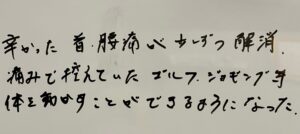 辛かった首・腰痛が少しずつ解消。
痛みで控えていたゴルフ、ジョギング等
体を動かすことができるようになった。